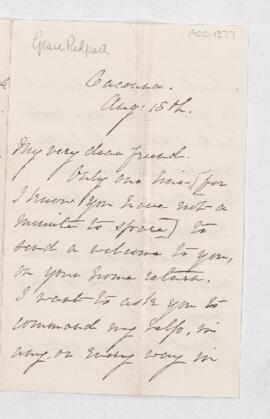 Grace Redpath
ACC. 1377
Cacouna.
Aug: 15th.
My very dear friend.
Only one line, (for
I know you have not a
minute to spare) to
send a welcome to you,
on your home return.
I want to ask you to
command my help, in
any or every way in